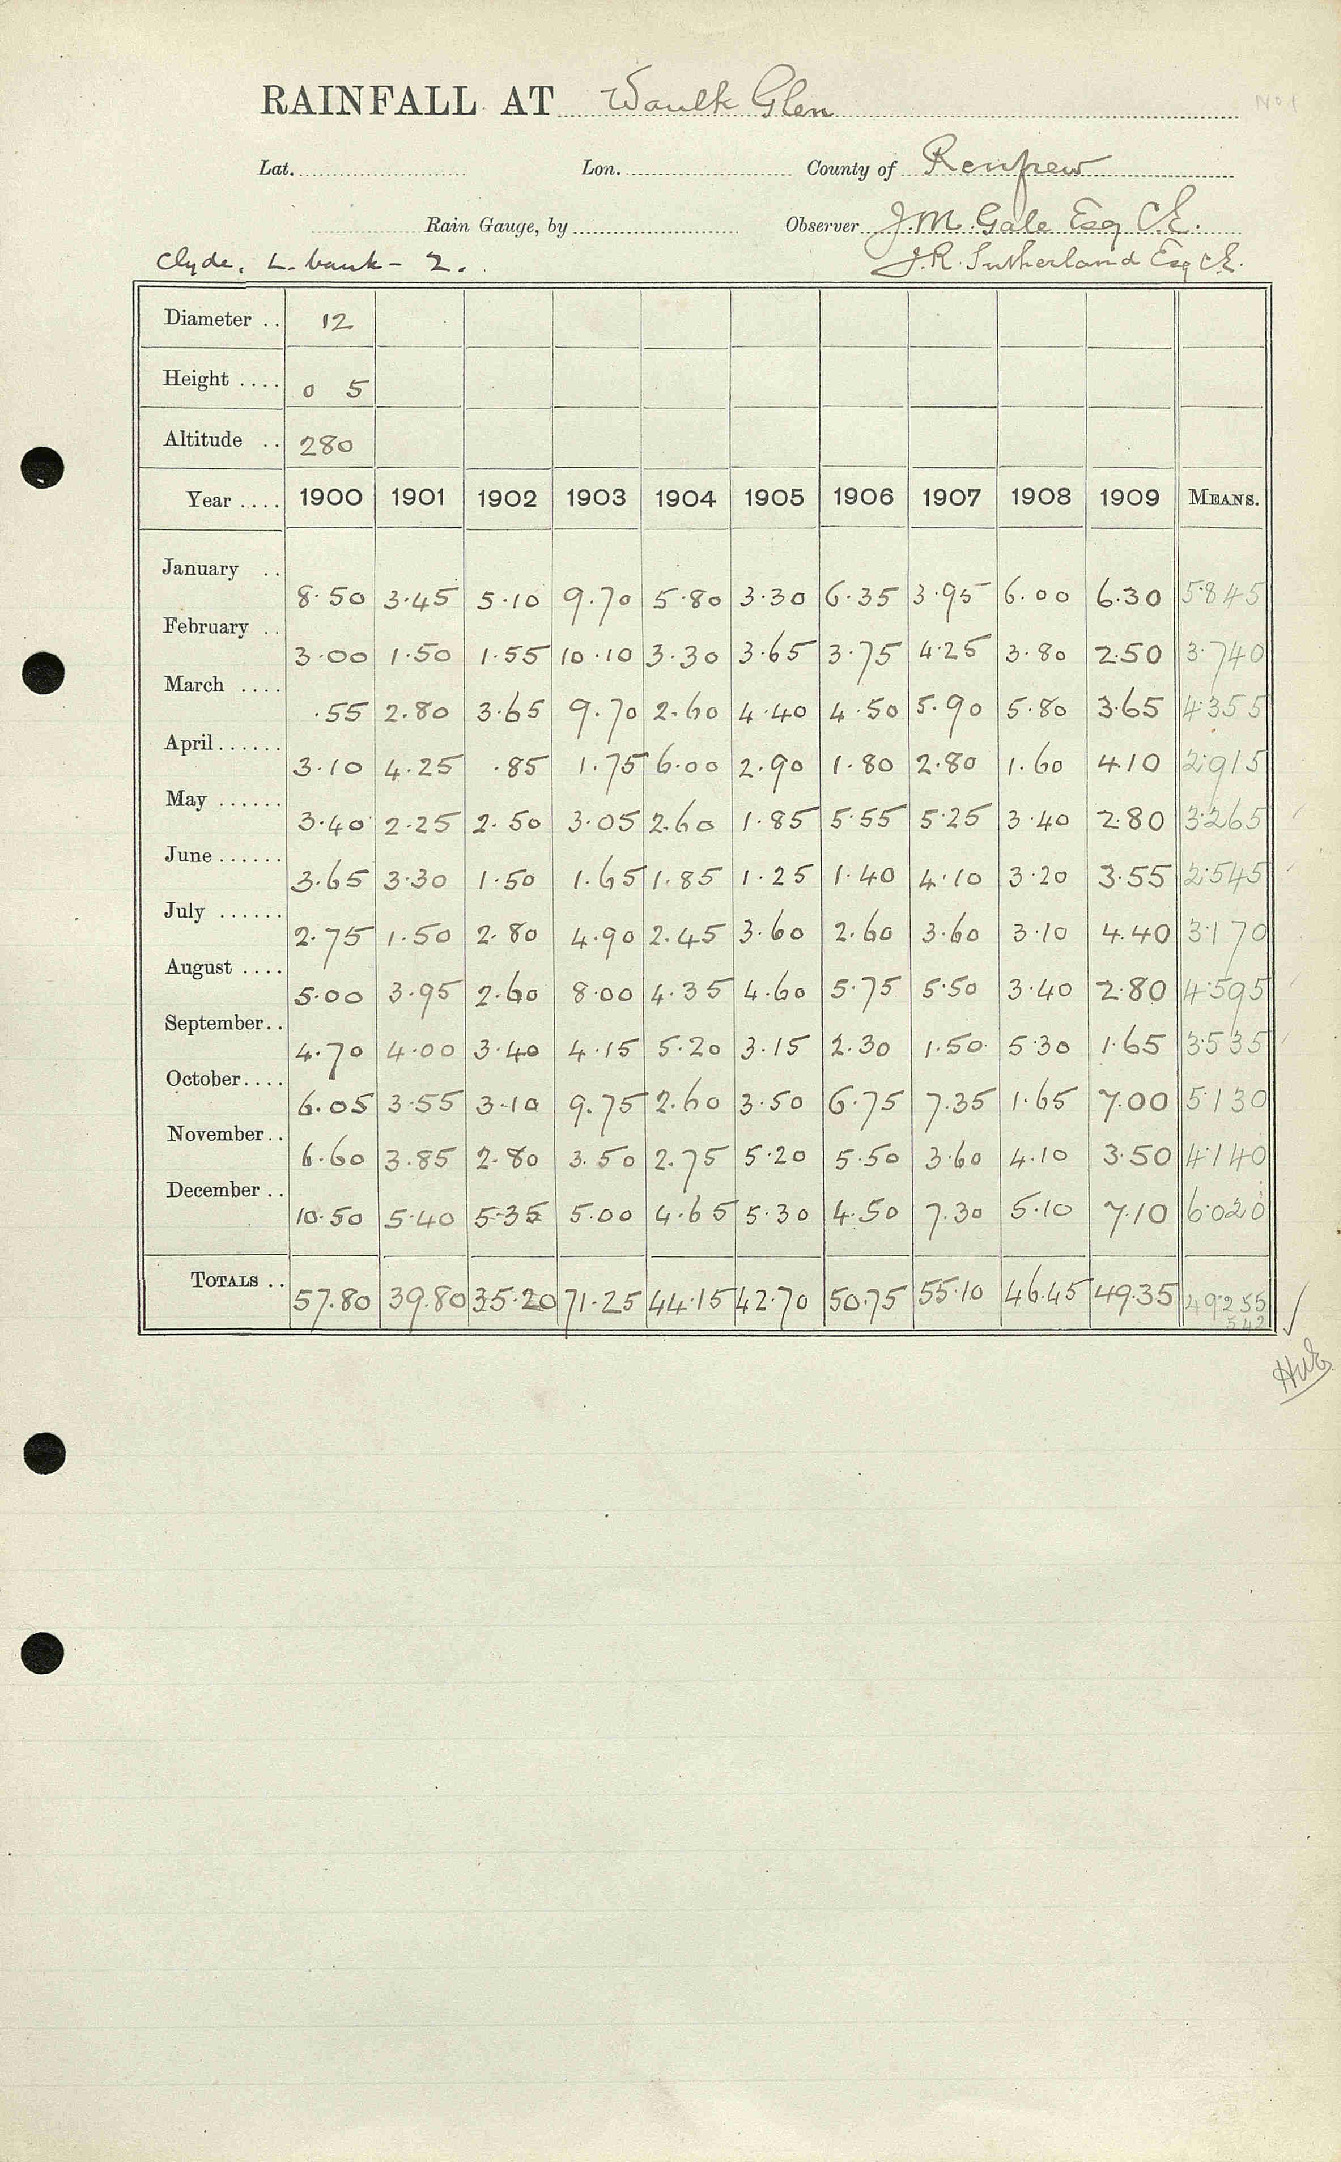 RAINFALL AT Waulk Glen No 1
Lat. Lon. County of Renfrew
Rain Gauge, by Observer J.M. Gale Esq C.E.
Clyde, L. bank - 2. J.R. Sutherland Esq C.E.
Diameter .. 12
Height .... 0 5
Altitude .. 280
Year .... 1900 1901 1902 1903 1904 1905 1906 1907 1908 1909 MEANS.
January .. 8.50 3.45 5.10 9.70 5.80 3.30 6.35 3.95 6.00 6.30 5.845
February .. 3.00 1.50 1.55 10.10 3.30 3.65 3.75 4.25 3.80 2.50 3.740
March .... .55 2.80 3.65 9.70 2.60 4.40 4.50 5.90 5.80 3.65 4.355
April ...... 3.10 4.25 .85 1.75 6.00 2.90 1.80 2.80 1.60 4.10 2.915
May ...... 3.40 2.25 2.50 3.05 2.60 1.85 5.55 5.25 3.40 2.80 3.265
June ...... 3.65 3.30 1.50 1.65 1.85 1.25 1.40 4.10 3.20 3.55 2.545
July ...... 2.75 1.50 2.80 4.90 2.45 3.60 2.60 3.60 3.10 4.40 3.170
August .... 5.00 3.95 2.60 8.00 4.35 4.60 5.75 5.50 3.40 2.80 4.595
September .. 4.70 4.00 3.40 4.15 5.20 3.15 2.30 1.50 5.30 1.65 3.535
October .... 6.05 3.55 3.10 9.75 2.60 3.50 6.75 7.35 1.65 7.00 5.130
November .. 6.60 3.85 2.80 3.50 2.75 5.20 5.50 3.60 4.10 3.50 4.140
December .. 10.50 5.40 5.35 5.00 4.65 5.30 4.50 7.30 5.10 7.10 6.020
TOTALS .. 57.80 39.80 35.20 71.25 44.15 42.70 50.75 55.10 46.45 49.35 49.255
542